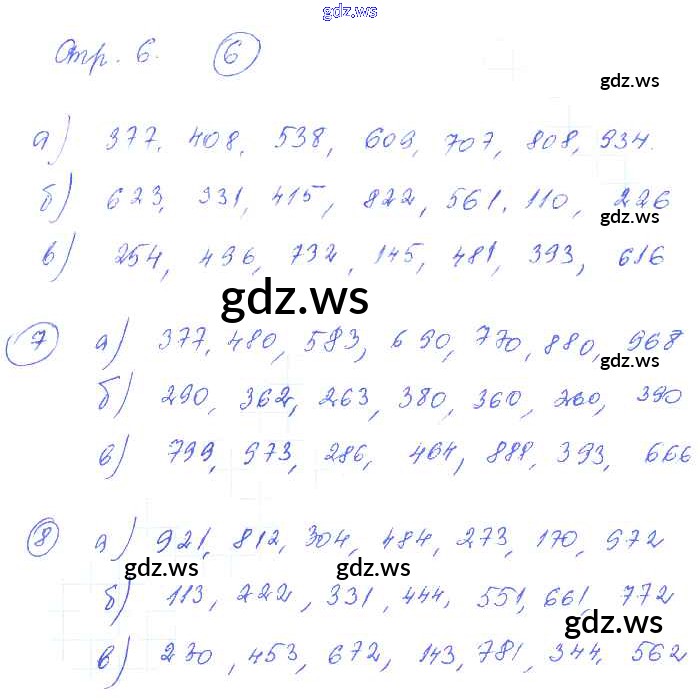 gdz.ws
Стр. 6. 6
gdz.ws
а) 377, 408, 538, 609, 707, 808, 934.
б) 623, 931, 415, 822, 561, 110, 226
gdz.ws
в) 254, 496, 732, 145, 481, 393, 616
gdz.ws
7 а) 377, 480, 583, 690, 770, 880, 968
gdz.ws
б) 290, 362, 263, 380, 360, 260, 390
в) 799, 973, 286, 464, 888, 393, 666
8 а) 921, 812, 304, 484, 273, 170, 972
gdz.ws gdz.ws
б) 113, 222, 331, 444, 551, 661, 772
gdz.ws
в) 270, 453, 672, 143, 781, 344, 562